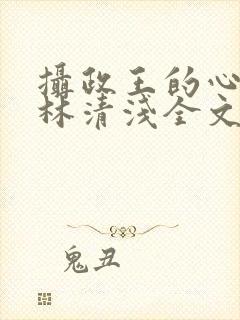 攝政王的心
林清淺全文
鬼丑